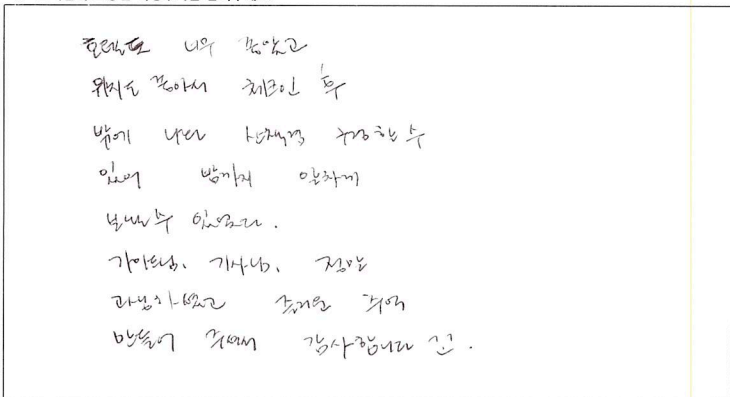 호텔도 너무 좋았고
위치도 좋아서 체크인 후
밖에 나와 산책겸 구경할 수
있어 밤까지 알차게
보낼 수 있었다.
가이드님, 기사님, 정말
감사하였고 즐거운 추억
만들어 주셔서 감사합니다